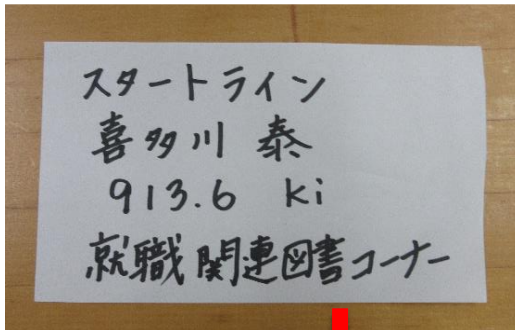 スタートライン
喜多川 泰
913.6 ki
就職関連図書コーナー